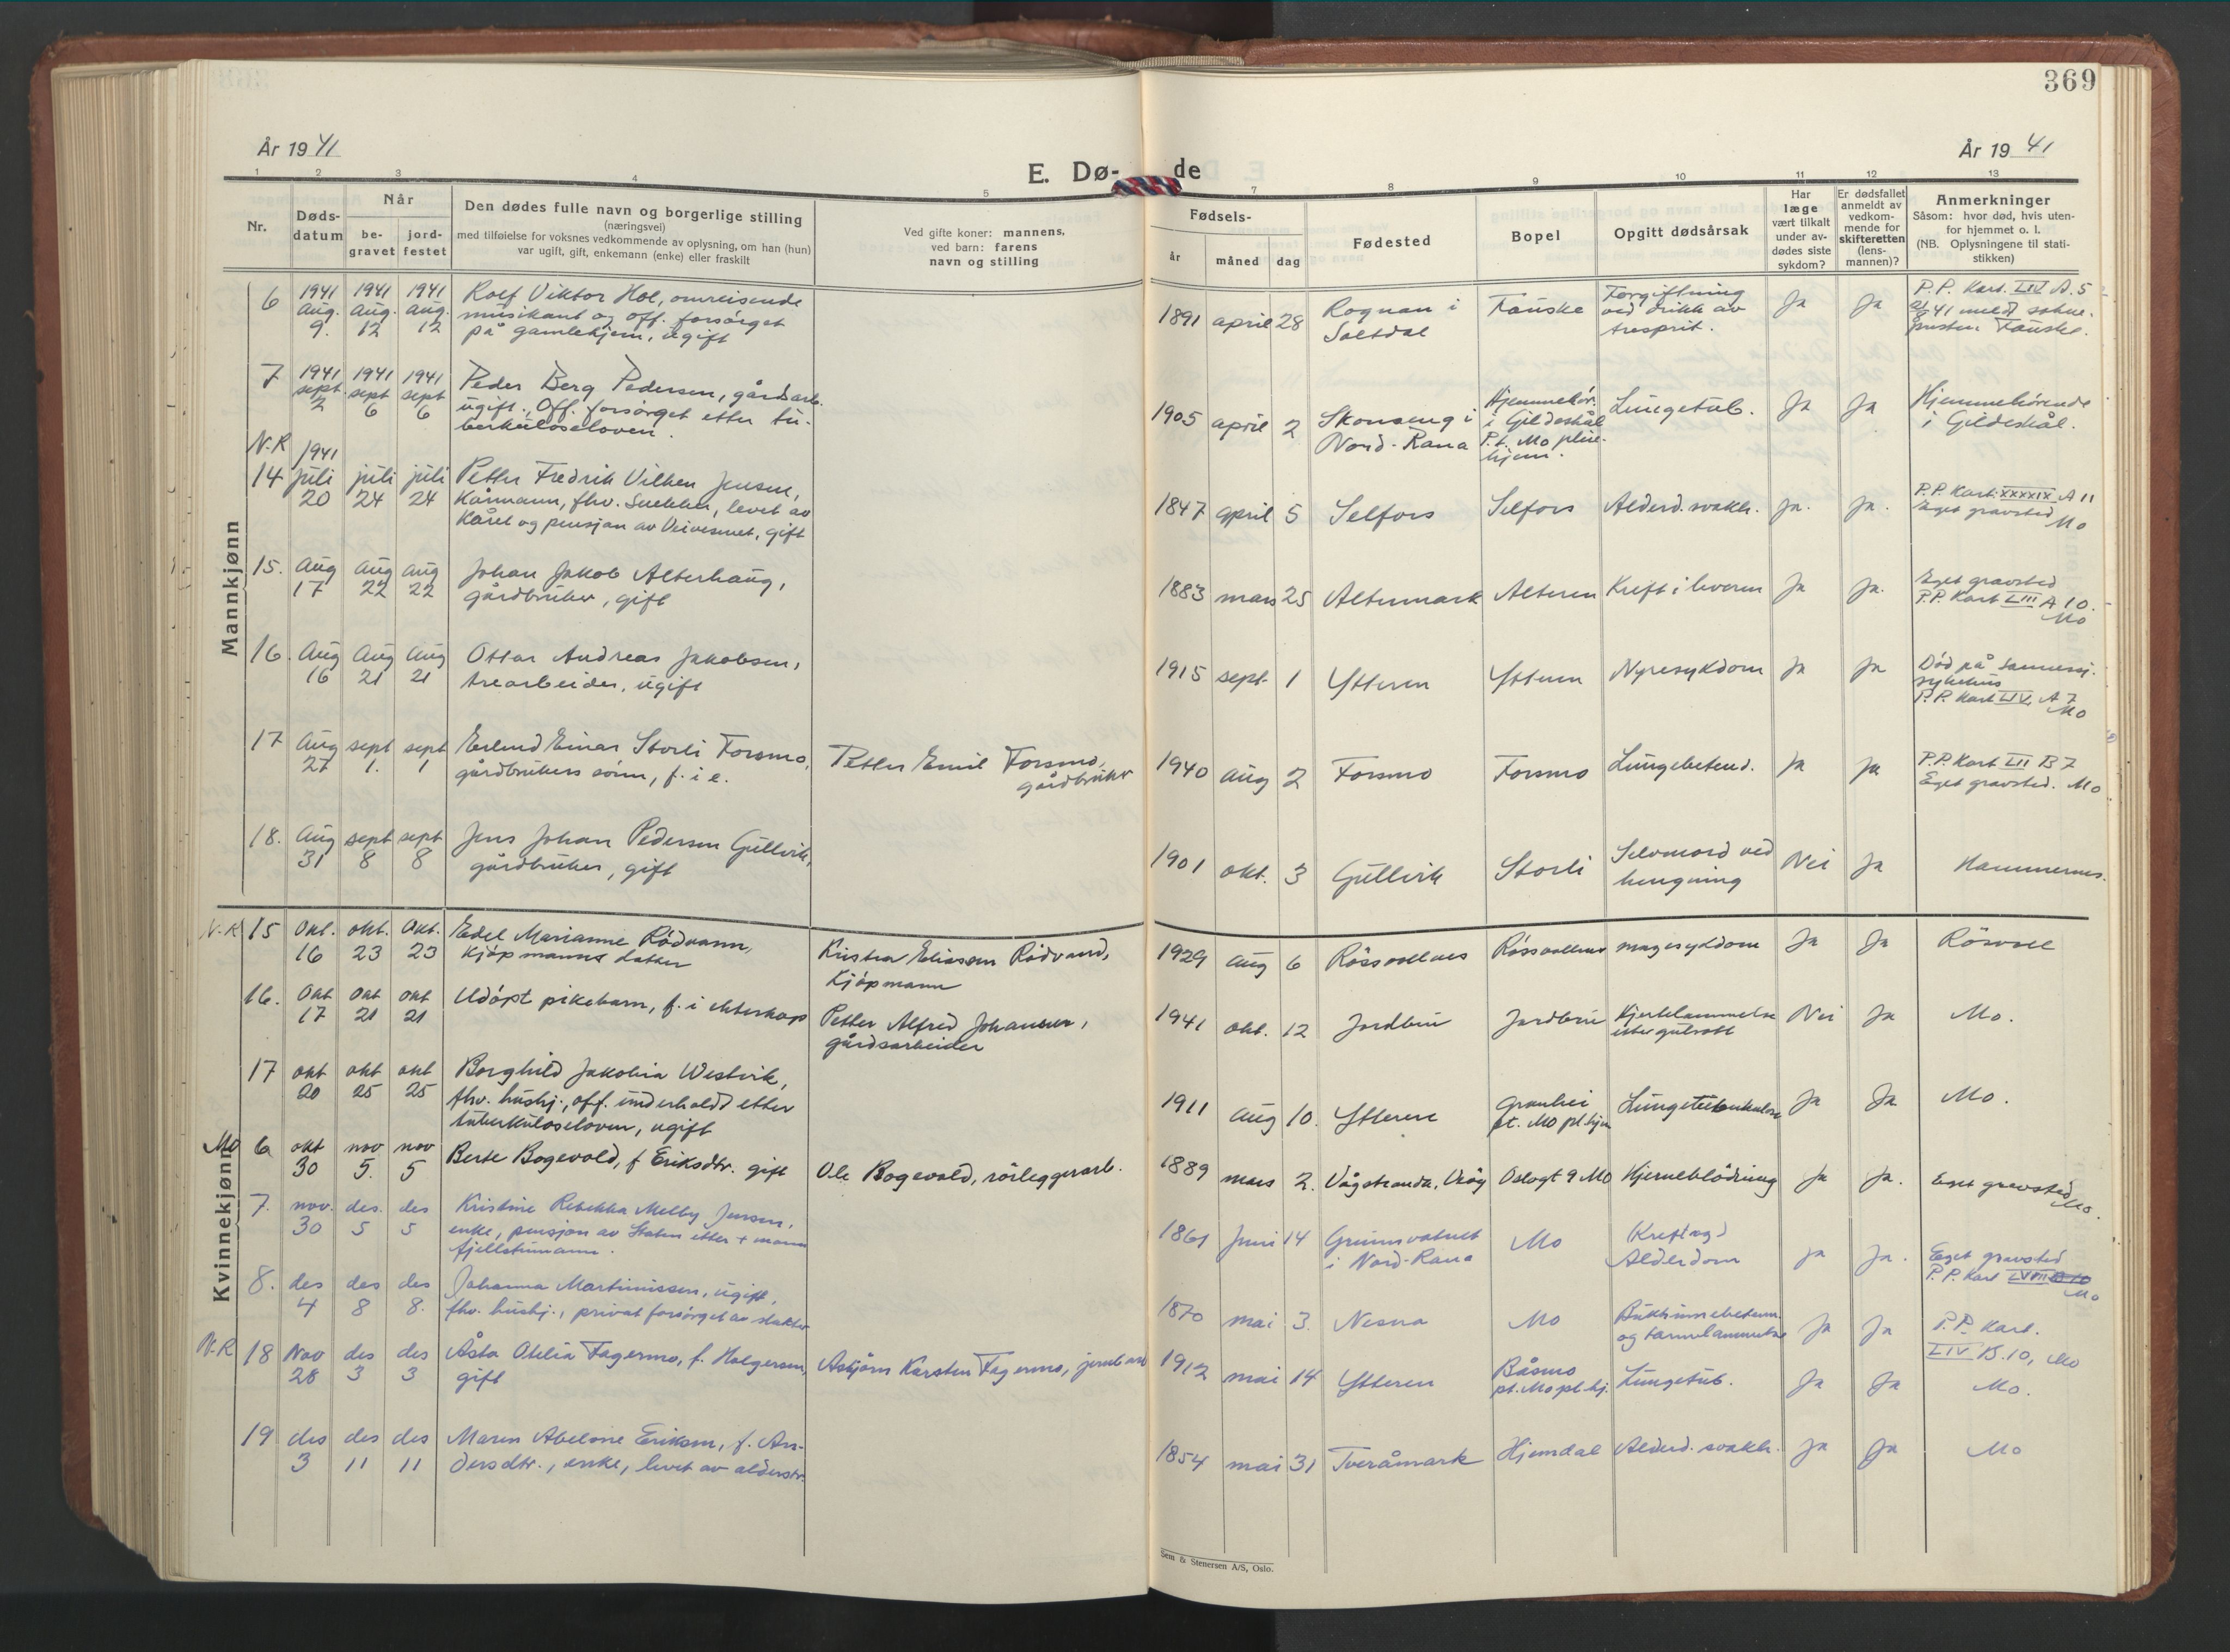 369
År 1941
År 1941
E. Dø-
de
1 2 3 4 5 7 8 9 10 11 12 13
Nr.
Døds-
datum
Når
be-
gravet
jord-
festet
Den dødes fulle navn og borgerlige stilling
(næringsvei)
med tilføielse for voksnes vedkommende av oplysning, om han (hun)
var ugift, gift, enkemann (enke) eller fraskilt
Ved gifte koner: mannens,
ved barn: farens
navn og stilling
Fødsels-
år måned dag
Fødested
Bopel
Opgitt dødsårsak
Har
læge
vært tilkalt
under av-
dødes siste
sykdom?
Er dødsfallet
anmeldt av
vedkom-
mende for
skifteretten
(lens-
mannen)?
Anmerkninger
Såsom: hvor død, hvis uten-
for hjemmet o. l.
(NB. Oplysningene til stati-
stikken)
Mannkjønn
6 1941 1941 1941 Rolf Viktor Hol, omreisende
Aug. Aug. Aug. musikant og off. forsørget
9. 12 12 på gamlehjem, ugift
1891 april 28 Rognan i Saltdal Fauske
Forgiftning
ved drikk av
tresprit.
Ja Ja
P.P. Kart. LIV A. 5
41 meldt sokne-
presten Fauske.
7 1941 1941 1941 Peder Berg Pedersen, gårdarb.
sept. sept sept ugift. Off. forsørget etter tu-
2 6 6 berkuloseloven.
1905 april 2 Skonseng i
Nord-Rana
Hjemmehør.
i Gildeskål
P.t. Mo pleie-
hjem.
Lungetub. Ja Ja
Hjemmehørende
i Gildeskål.
N-R 1941
14 juli juli juli Petter Fredrik Vilhen Jensen,
20 24 24 Kårmann, fhv. Snekker, levet av
Kåret og pensjon av Veivesenet, gift
1847 april 5 Selfors Selfors Alderd. svakh. Ja. Ja.
P.P. Kart. XXXXIX A 11
Eget gravsted
Mo
15. Aug Aug Aug Johan Jakob Alterhaug,
17 22 22 gårdbruker, gift
1883 mars 25 Altermark Alteren Kreft i leveren Ja Ja.
Eget gravsted
P.P. Kart LIII A 10.
Mo
16. Aug Aug Aug Ottar Andreas Jakobsen,
16 21 21 trearbeider, ugift
1915 sept. 1 Ytteren Ytteren Nyresykdom Ja Ja
Død på Sannessj.
sykehus
P.P. Kart LIV, A 7
Mo
17 Aug sept sept Erlend Einar Storli Forsmo,
27 1. 1 gårdbrukers sønn, f. i e.
Petter Emil Forsmo,
gårdbruker
1940 aug 2 Forsmo Forsmo Lungebetend. Ja Ja
P.P. Kart LII B 7
Eget gravsted. Mo
18. Aug sept sept Jens Johan Pedersen Gullvik,
31 8 8 gårdbruker, gift
1901 okt. 3 Gullvik Storli
Selvmord ved
hengning
Nei Ja Hammernes.
Kvinnekjønn
N-R 15 Okt. okt. Okt. Edel Marianne Rødvann,
16 23 23 Kjøpmanns datter
Kristen Eliassen Rødvand,
Kjøpmann
1929 aug 6 Røssvollnes Røssvollnes magesykdom Ja Ja Røsvoll
16. Okt Okt okt Udøpt pikebarn, f. i ekteskap
17 21 21
Petter Alfred Johansen,
gårdsarbeider
1941 okt. 12 Jordbru Jordbru
Hjertelammelse
etter gulsott
Nei Ja Mo.
17 okt okt okt Borghild Jakobia Westvik,
20 25 25 fhv. hushj., off. underholdt etter
tuberkuloseloven, ugift
1911 aug 10. Ytteren
Granhei
pt. Mo pl.hjm
Lungetuberkulose Ja Ja Mo.
Mo 6 okt nov nov Berte Bogevold, f Eriksdtr. gift
30 5. 5
Ole Bogevold, rørleggerarb.
1889 mars 2. Vågstranda, Veøy Oslogt 9 Mo Hjerneblødning Ja Ja. Eget gravsted
Mo.
7. nov. des. des Kristine Rebekka Melby Jensen,
30 5 5 enke, pensjon av Staten etter + mann
fjellstuemann.
1861 Juni 14 Grunnvatnet
i Nord-Rana
Mo
(Kreft og)
Alderdom
Ja Ja.
Eget gravsted
P.P. Kart LVIII B 10
Mo
8. des des des Johanna Martinussen, ugift,
4 8 8. fhv. hushj., privat forsørget av slekten
1870 mai 3. Nesna Mo
Bukhinnebetenn.
og tarmlammelse
Ja Ja
P.P. Kart.
LIV B. 10, Mo
N-R 18 Nov des des Åsta Otelia Fagermo, f. Holgersen,
28 3 3 gift
Asbjørn Karsten Fagermo, jernb.arb
1912 mai 14 Ytteren
Båsmo
pt. Mo pl.hj.
Lungetub. Ja Ja Mo.
19 des des des Maren Abelone Eriksen, f. An-
3 11 11 dersdtr., enke, levet av alderstr.
1854 mai 31 Tveråmark Hjemdal Alderd. svakh. Ja Ja Mo
Sem & Stenersen A/S, Oslo.